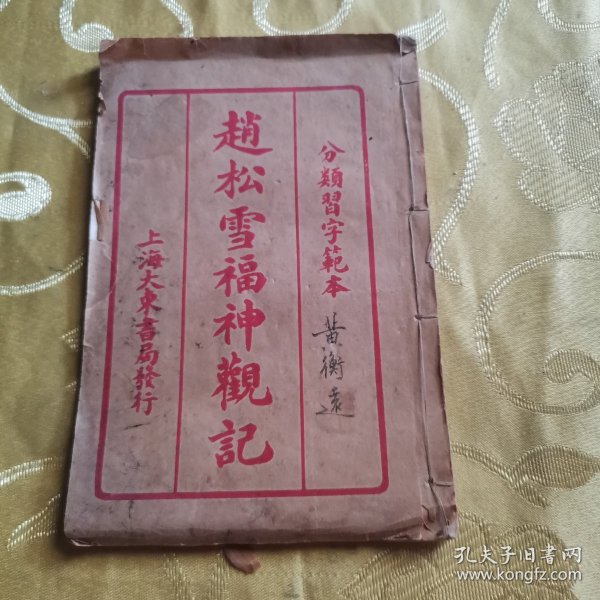 分類習字範本
黃衡遠
趙松雪福神觀記
上海大東書局發行
孔夫子旧书网
www.kongfz.com